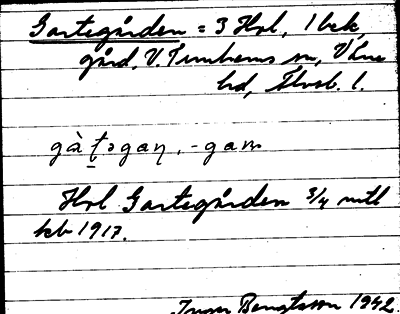 Gartsgården = 3 Hvl, 1 bek,
gård, V. Tunhems sn, V'äne
hd, Älvsb. l.
gàṯəgaɳ, -gam
Hvl Gartsgården 3/4 mtl
kb 1917.
Inger Bengtsson 1942